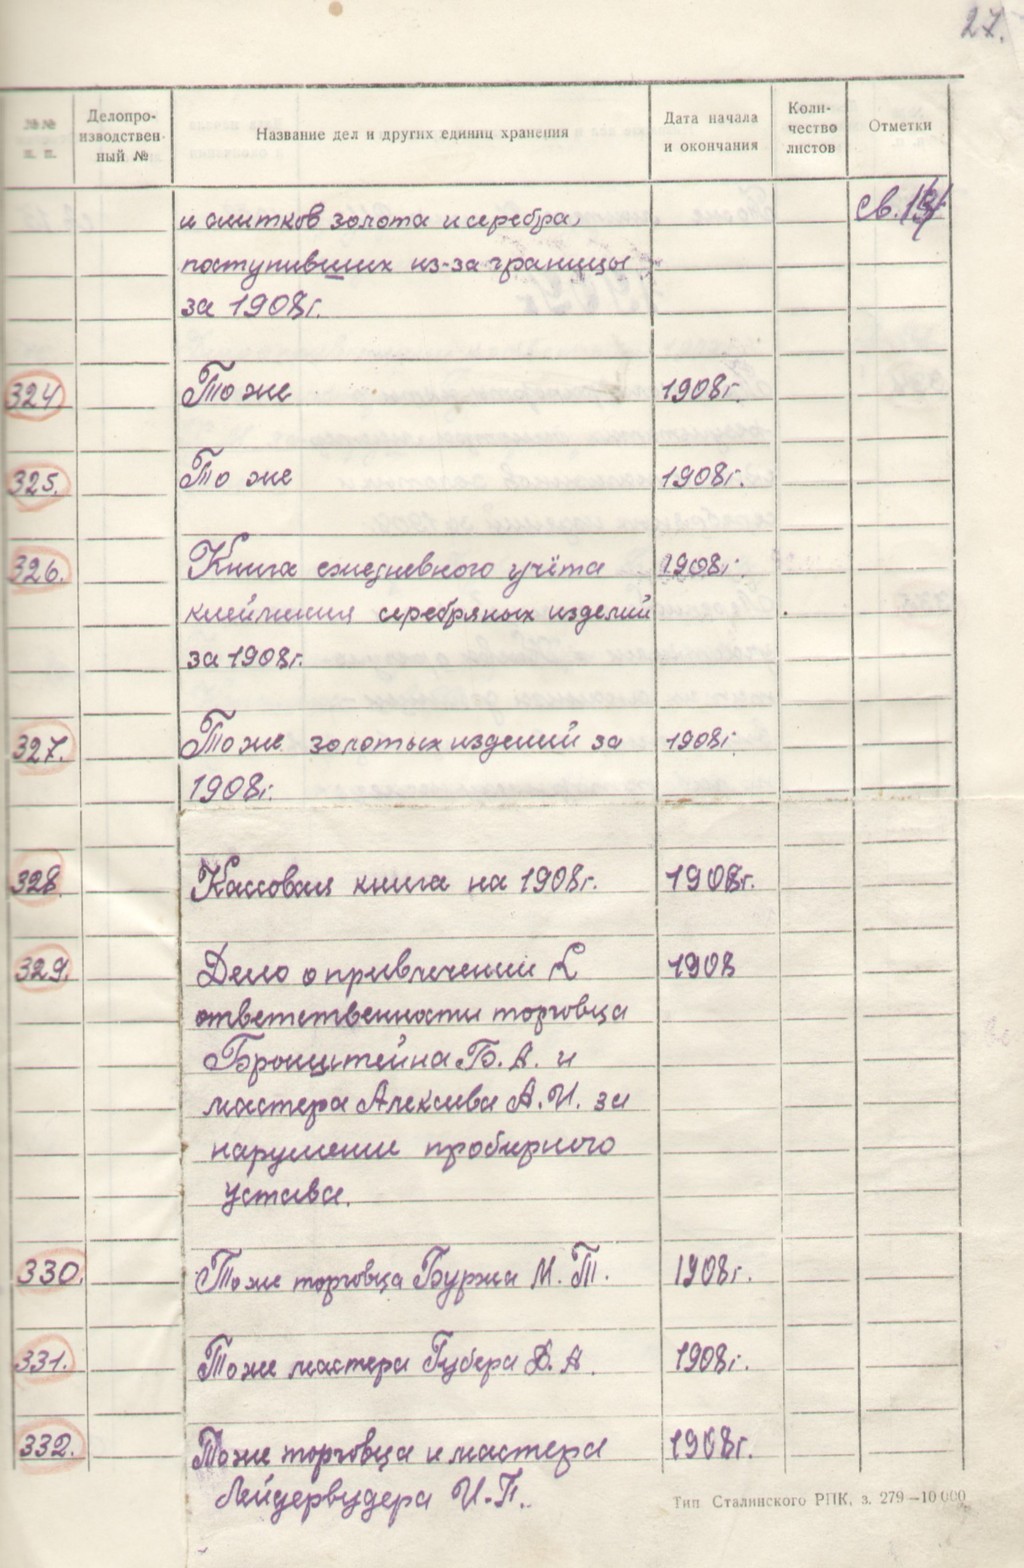 27.
№№ п. п. Делопро-изводствен-ный № Название дел и других единиц хранения Дата начала и окончания Коли-чество листов Отметки
и слитков золота и серебра, св.
поступивших из-за границы
за 1908г.
324 То же 1908г.
325. То же 1908г.
326. Книга ежедневного учёта 1908г.
клеймения серебряных изделий
за 1908г.
327. То же золотых изделий за 1908г.
1908г.
328 Кассовая книга на 1908г. 1908г.
329. Дело о привлечении к 1908
ответственности торговца
Бронштейна Б. А. и
мастера Алексеева А. И. за
нарушение пробирного
устава.
330. То же торговца Буржа М. Т. 1908г.
331. То же мастера Губера Д. А. 1908г.
332. То же торговца и мастера 1908г.
Лейдервудера И. П.
Тип Сталинского РПК, з. 279—10 000